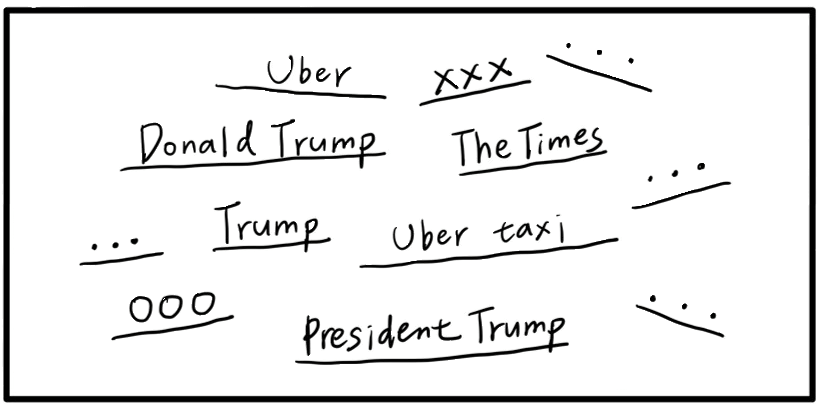 Uber xxx ...
Donald Trump The Times
... Trump Uber taxi ...
OOO President Trump ...